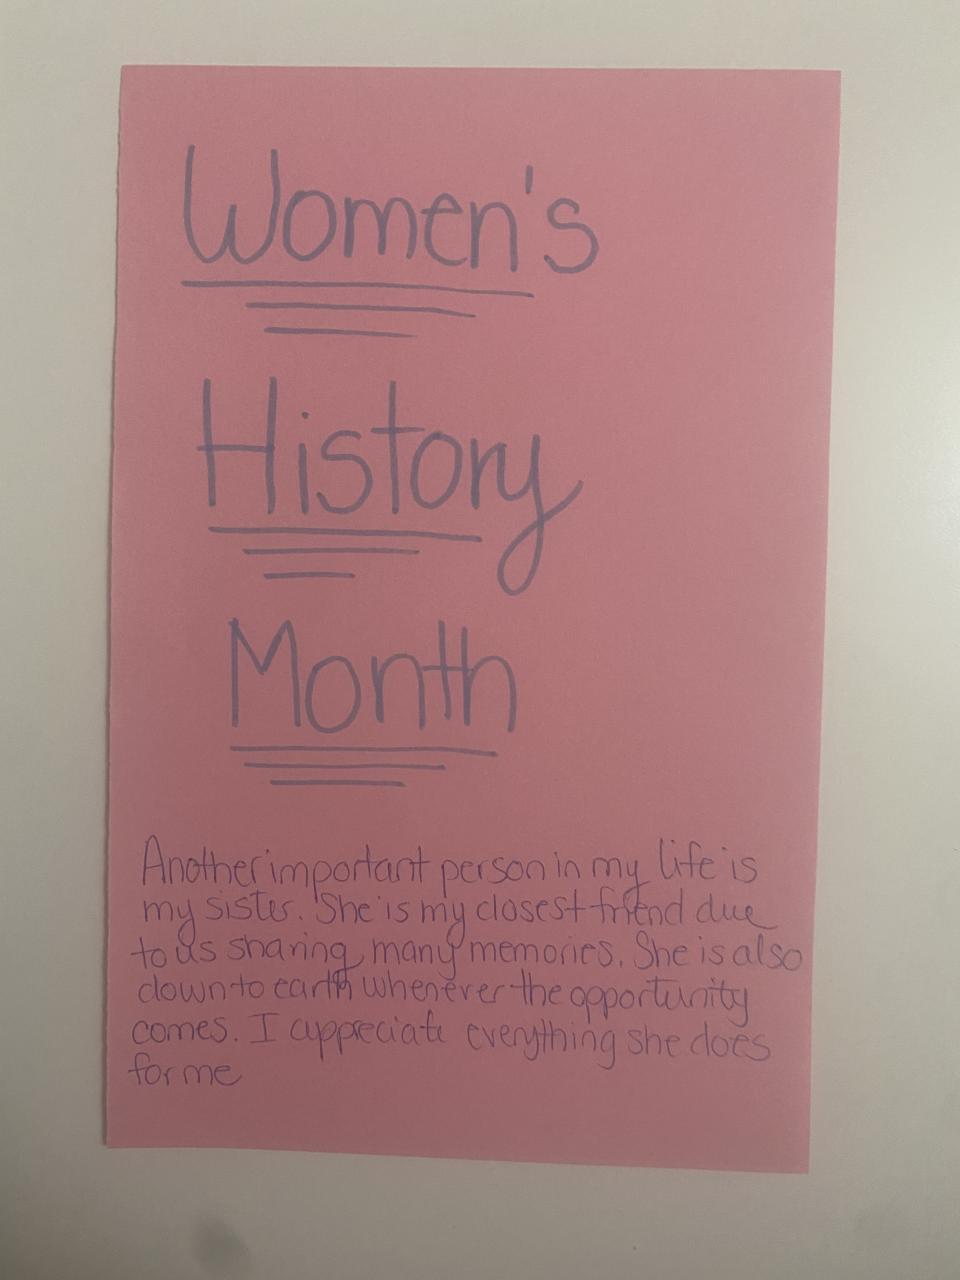 Women's
History
Month
Another important person in my life is
my sister. She is my closest friend due
to us sharing many memories. She is also
down to earth whenever the opportunity
comes. I appreciate everything she does
for me